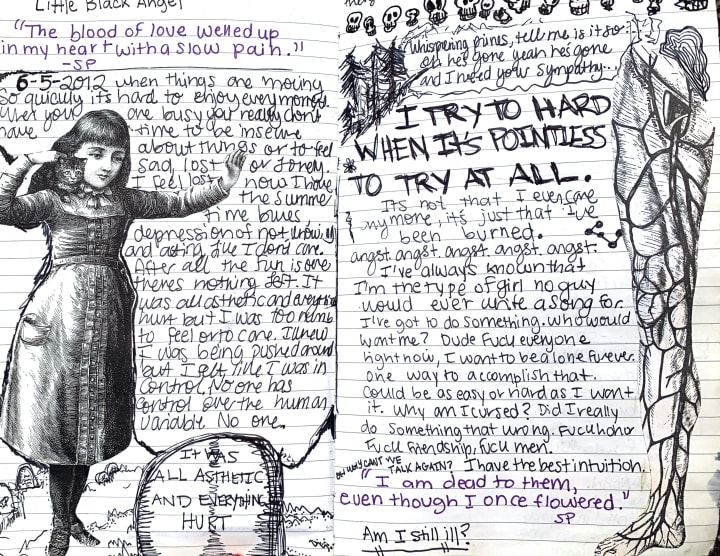 Little Black Angel
"The blood of love welled up
in my heart with a slow pain."
-SP
6-5-2012 when things are moving
so quickly it's hard to enjoy every moment.
When you are busy you really don't
have time to be insecure
about things or to feel
sad, lost or lonely.
I feel lost now I have
the summer
time blues,
depression of not
and acting like I dont care.
After all the fun is over
theres nothing left. It
was all asthetic and everything
hurt but I was too numb
to feel or to care. I knew
I was being pushed around
but I felt like I was in
control. No one has
control over the human
variable. No one.
IT WAS
ALL ASTHETIC
AND EVERYTHING
HURT
Whispering pines, tell me is it so?
oh he's gone yeah he's gone
and I need your sympathy...
I TRY TO HARD
WHEN IT'S POINTLESS
TO TRY AT ALL.
It's not that I even care
any more, it's just that I've
been burned.
angst. angst. angst. angst. angst.
I've always known that
I'm the type of girl no guy
would ever write a song for.
I've got to do something. who would
want me? Dude Fuck everyone
right now, I want to be alone forever.
one way to accomplish that.
Could be as easy or hard as I want
it. Why am I cursed? Did I really
do something that wrong. Fuck honor
Fuck friendship, fuck men.
oh why cant we talk again? I have the best intuition.
"I am dead to them,
even though I once flowered."
SP
Am I still ill?